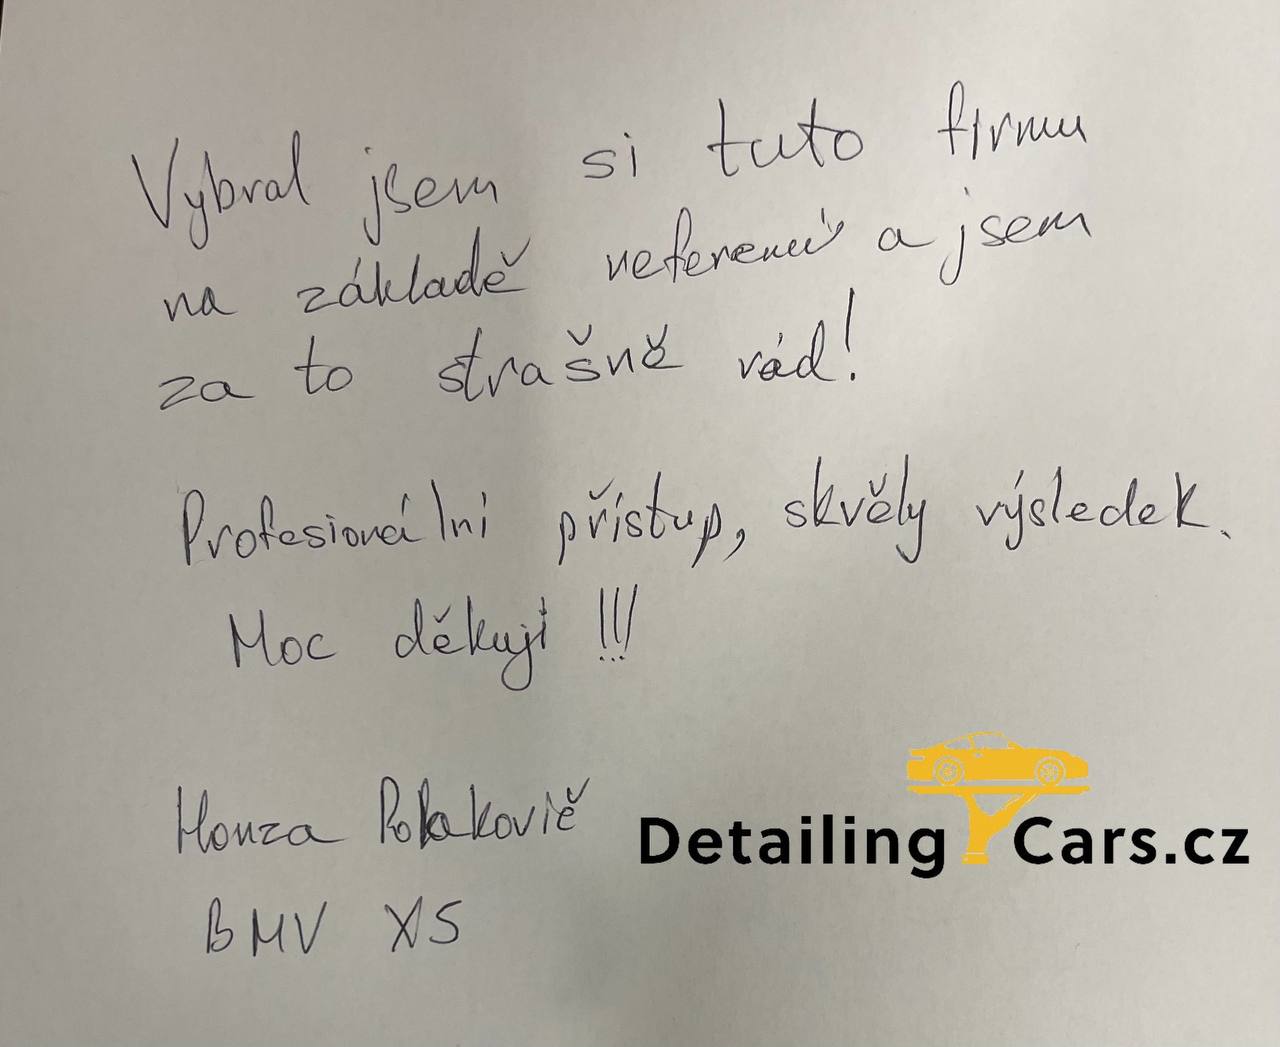 Vybral jsem si tuto firmu
na základě referencí a jsem
za to strašně rád!
Profesionální přístup, skvěly výsledek.
Moc děkuji !!!
Honza
BMV X5
DetailingCars.cz